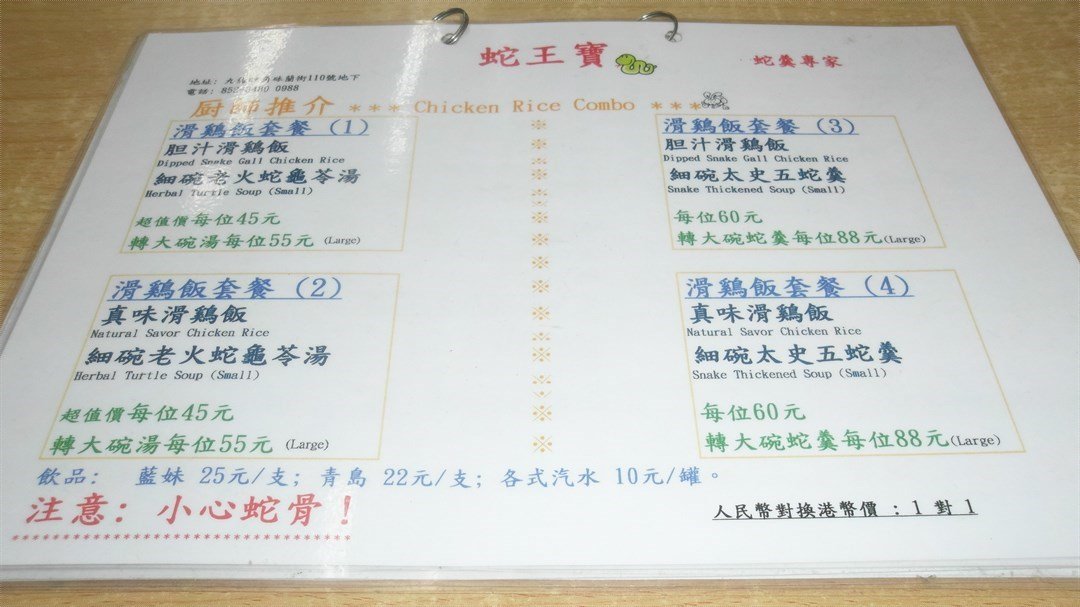 蛇王寶
蛇羹專家
地址: 九龍 角咪蘭街110號地下
電話: 852- 0988
厨師推介 *** Chicken Rice Combo ***
滑鷄飯套餐 (1)
胆汁滑鷄飯
Dipped Snake Gall Chicken Rice
細碗老火蛇龜苓湯
Herbal Turtle Soup (Small)
超值價每位45元
轉大碗湯每位55元 (Large)
滑鷄飯套餐 (2)
真味滑鷄飯
Natural Savor Chicken Rice
細碗老火蛇龜苓湯
Herbal Turtle Soup (Small)
超值價每位45元
轉大碗湯每位55元 (Large)
滑鷄飯套餐 (3)
胆汁滑鷄飯
Dipped Snake Gall Chicken Rice
細碗太史五蛇羹
Snake Thickened Soup (Small)
每位60元
轉大碗蛇羹每位88元(Large)
滑鷄飯套餐 (4)
真味滑鷄飯
Natural Savor Chicken Rice
細碗太史五蛇羹
Snake Thickened Soup (Small)
每位60元
轉大碗蛇羹每位88元(Large)
飲品: 藍妹 25元/支; 青島 22元/支; 各式汽水 10元/罐。
注意: 小心蛇骨!
人民幣對換港幣價 : 1 對 1